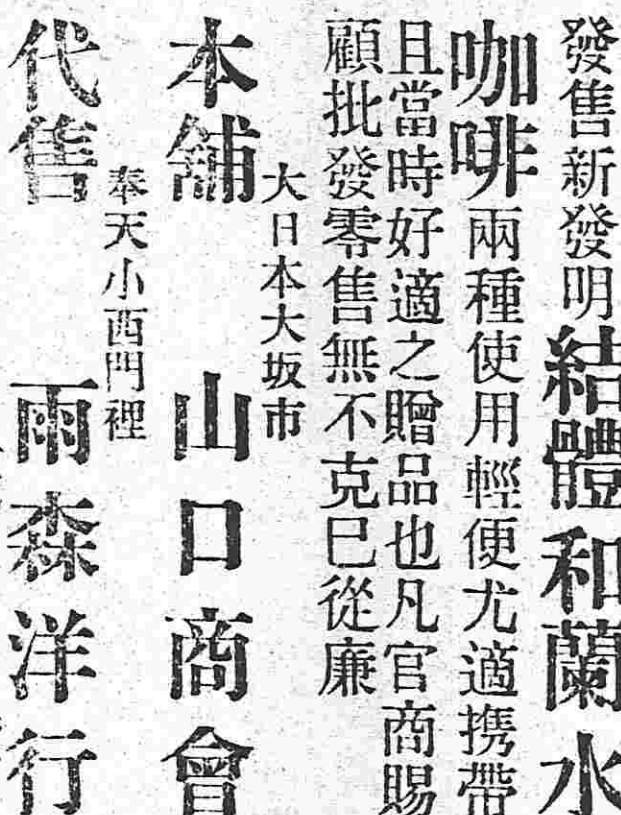 發售新發明結體和蘭水
咖啡兩種使用輕便尤適携帶
且當時好適之贈品也凡官商賜
顧批發零售無不克巳從廉
大日本大坂市
本舖 山口商會
奉天小西門裡
代售 雨森洋行